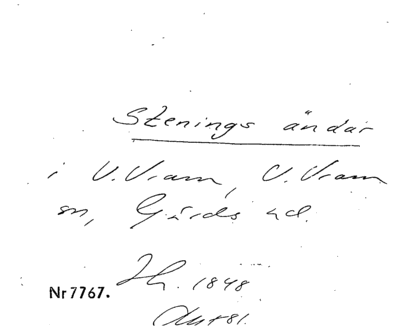 Stenings ändar
i V. Vram, V. Vram
sn, Gärds hd.
Nr 7767. 1848